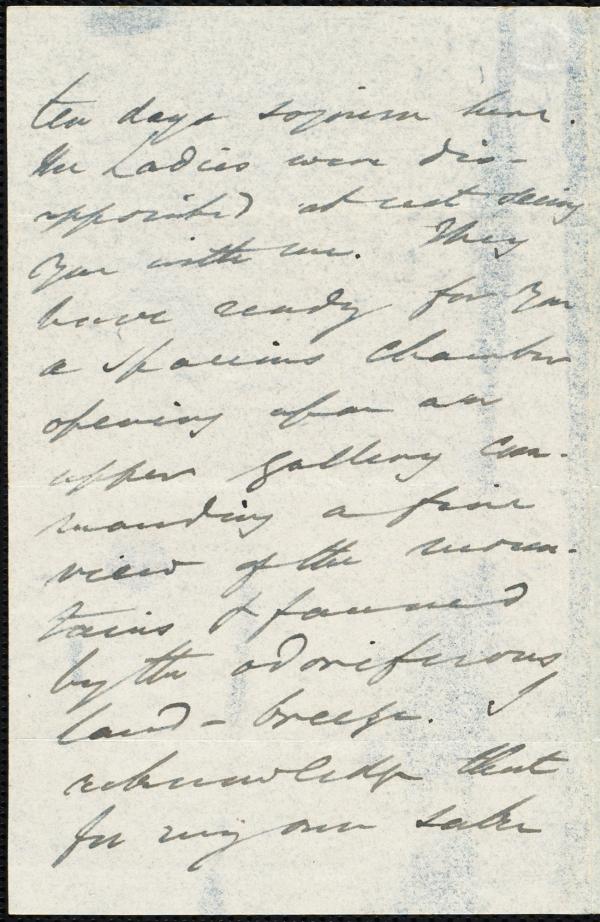 ten days sojourn here.
The Ladies were dis-
appointed at not seeing
you with me. They
have ready for you
a spacious chamber
opening upon an
upper gallery com-
manding a fine
view of the moun-
tains & fanned
by the odoriferous
land-breeze. I
acknowledge that
for my own sake